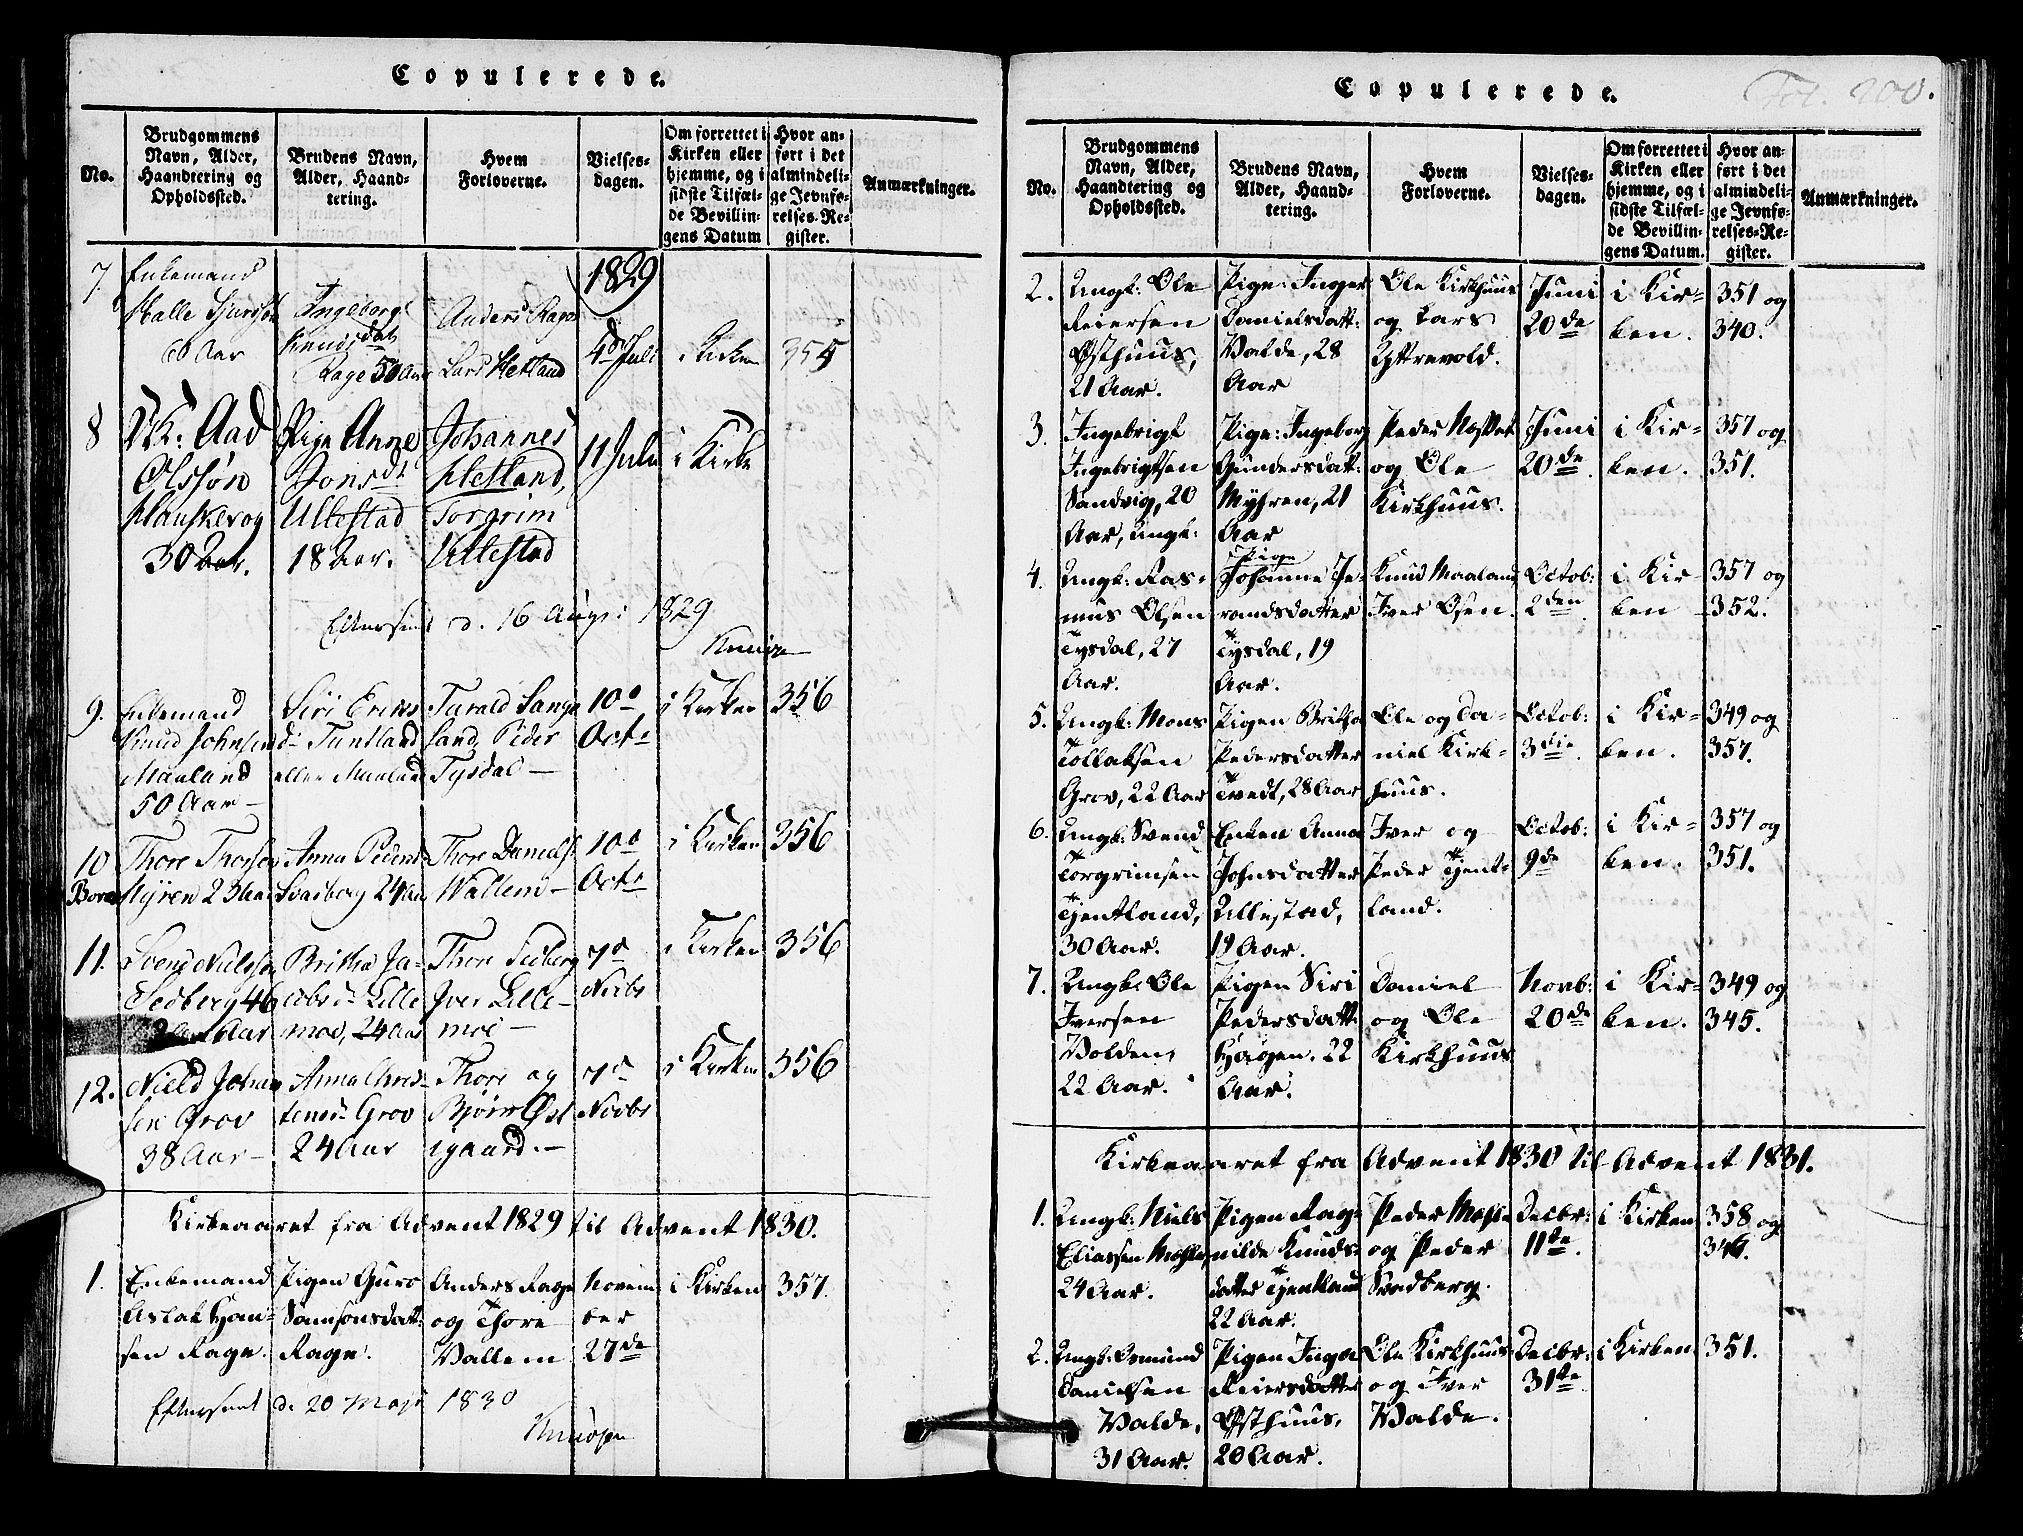 Copulerede.
No.
Brudgommens
Navn, Alder,
Haandtering og
Opholdssted.
Brudens Navn,
Alder, Haand-
tering.
Hvem
Forloverne.
Vielses-
dagen.
Om forrettet i
Kirken eller
hjemme, og i
sidste Tilfæl-
de Bevillin-
gens Datum
Hvor an-
ført i det
almindeli-
ge Jevnfø-
relses-Re-
gister.
Anmærkninger.
7.
Enkemand
Halle Sjursøn
60 Aar
Ingeborg
Knudsdat
Rage 50 Aar
Anders Rage
Lars Hetland
1829
4de Juli
i Kirken
354
8
UK: Aad
Olssøn
Hauskevog
30 Aar.
Pige Anne
Jonsdt
Ullestad
18 Aar.
Johannes
Hetland,
Torgrim
Ullestad
11 Juli
i Kirke
Efterseet d. 16 Aug: 1829
9.
Enkemand
Knud Johnsen
Maaland
50 Aar –
Siri Eriks
d: Tuntland
eller Maaland
Tarald Sange
land, Peder
Tysdal –
10d
Octr
i Kirken
356
10
Thore Thorsen
Myren 23 Aar
Anna Peders
Svadberg 24 Aar
Thore Daniels
Wallem –
10d
Octr
i Kirken
356
11.
Svend Nielssøn
Sedberg 46
Aar
Britha Ja-
cobsd: Lille
moe, 24 Aar
Thore Sedberg
Iver Lille-
moe –
7d
Novbr
i Kirken
356
12.
Niels Johan
sen Grov
38 Aar –
Anna Chris-
tensd: Grov
24 Aar
Thore og
Bjørn Øst
igaard. –
7d
Novbr
i Kirken
356
Kirkeaaret fra Advent 1829 til Advent 1830.
1.
Enkemand
Aslak Han-
sen Rage.
Pigen Guro
Samsonsdatt:
Rage.
Anders Rage
og Thore
Vallem
Novem
ber
27de
i Kirken
357.
Efterseet d: 20 Maji 1830
Copulerede.
Fol. 200.
No.
Brudgommens
Navn, Alder,
Haandtering og
Opholdssted.
Brudens Navn,
Alder, Haand-
tering.
Hvem
Forloverne.
Vielses-
dagen.
Om forrettet i
Kirken eller
hjemme, og i
sidste Tilfæl-
de Bevillin-
gens Datum.
Hvor an-
ført i det
almindeli-
ge Jevnfø-
relses-Re-
gister.
Anmærkninger.
2.
Ungk: Ole
Reiersen
Østhuus,
21 Aar.
Pige: Inger
Danielsdatt:
Valde, 28
Aar
Ole Kirkhuus
og Lars
Yttrevold.
Juni
20de
i Kir-
ken.
351 og
340.
3.
Ingebrigt
Ingebrigtsen
Sandvig, 20
Aar, Ungk:
Pige: Ingeborg
Gundersdatt:
Myhren, 21
Aar
Peder Nesset
og Ole
Kirkhuus.
Juni
20de
i Kir-
ken.
357 og
351.
4.
Ungk: Ras-
mus Olsen
Tysdal, 27
Aar.
Pige
Johanne Te-
randsdatter
Tysdal, 19
Aar.
Knud Maaland
Iver Osen.
Octob:
2den
i Kir-
ken
357 og
352.
5.
Ungk: Mons
Tollaksen
Grov, 22 Aar
Pigen Britha
Pedersdatter
Tvedt, 28 Aar
Ole og Da-
niel Kirk-
huus.
Octob:
3die
i Kir-
ken.
349 og
357.
6.
Ungk: Svend
Torgrimsen
Tjentland,
30 Aar.
Enken Anna
Johnsdatter
Ullestad,
19 Aar.
Iver og
Peder Tjent-
land.
Octob:
9de
i Kir-
ken.
357 og
351.
7.
Ungk: Ole
Iversen
Volden,
22 Aar.
Pigen Siri
Pedersdatt:
Haugen. 22
Aar.
Daniel
og Ole
Kirkhuus
Novb:
20de
i Kir-
ken.
349 og
345.
Kirkeaaret fra Advent 1830 til Advent 1831.
1.
Ungk: Niels
Eliassen Mæhle,
24 Aar.
Pigen Rag-
nilde Knuds-
datter Tjentland
22 Aar.
Peder Mæhle
og Peder
Svadberg.
Decbr:
11te
i Kirken
358 og
346.
2.
Ungk: Osmund
Danielsen
Valde,
31 Aar.
Pigen Inga
Reiersdatter
Østhuus,
20 Aar.
Ole Kirkhuus
og Iver
Valde.
Decbr:
31te
i Kirken
351.